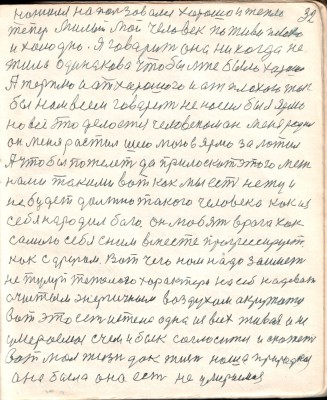 32
пользовался хорошо и тепло
теперь милый мой человек по живому плохо
и холодно. Я говорит она никогда не
жила одинакова чтобы мне было хорошо
Я терплю и от хорошего и от плохого
бы на всем говорит не носил бы Ярмо
но всё это делается человеком он меня родил
он меня растил шею мою в ярмо заложил
А чтобы пожелеть да приласкать этого меж
нами таким вот как мы есть нету и
не будет должно такого человека как из
себя народил бог он любит врага как
самого себя с ним вместе прогрессирует
как с другом. Вот чего нам надо займет
не тулуп тяжелого характера на себе надевать
а чистым энергичным воздухом окружать
вот это есть истина одна из всех живая и не
умераемая с чем и был согласиться и скажет
вот моя жизнь так жить наша природа
она была она есть не умераемая